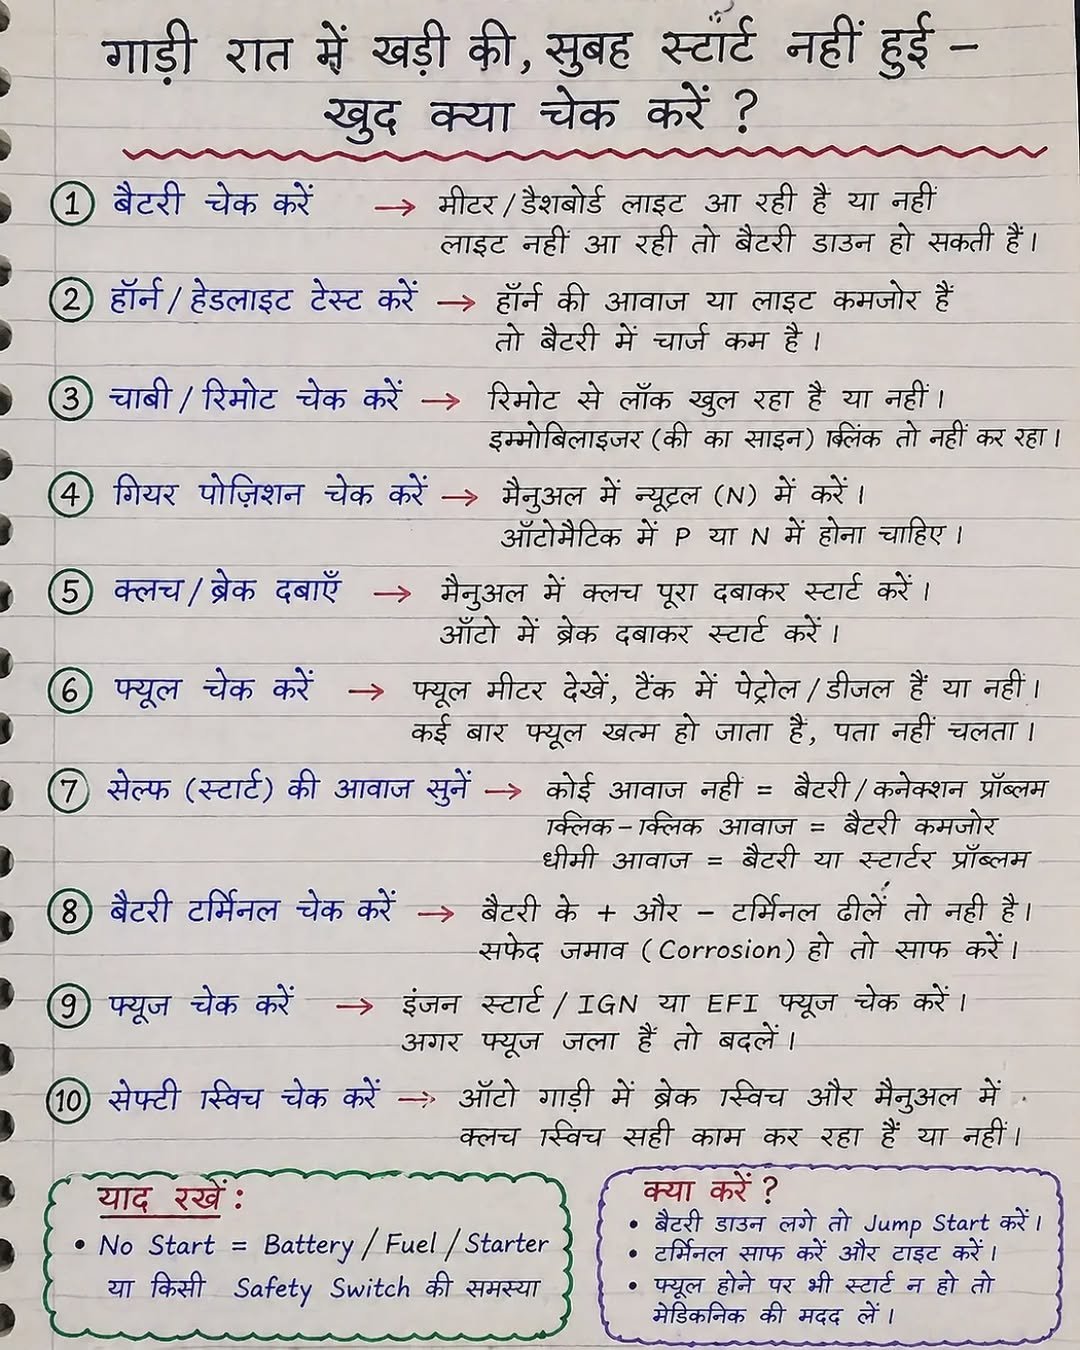 गाड़ी रात में खड़ी की, सुबह स्टार्ट नहीं हुई –
खुद क्या चेक करें ?
① बैटरी चेक करें → मीटर / डैशबोर्ड लाइट आ रही है या नहीं
लाइट नहीं आ रही तो बैटरी डाउन हो सकती हैं।
② हॉर्न / हेडलाइट टेस्ट करें → हॉर्न की आवाज या लाइट कमजोर हैं
तो बैटरी में चार्ज कम है।
③ चाबी / रिमोट चेक करें → रिमोट से लॉक खुल रहा है या नहीं।
इम्मोबिलाइजर (की का साइन) ब्लिंक तो नहीं कर रहा।
④ गियर पोज़िशन चेक करें → मैनुअल में न्यूट्रल (N) में करें।
ऑटोमैटिक में P या N में होना चाहिए।
⑤ क्लच / ब्रेक दबाएँ → मैनुअल में क्लच पूरा दबाकर स्टार्ट करें।
ऑटो में ब्रेक दबाकर स्टार्ट करें।
⑥ फ्यूल चेक करें → फ्यूल मीटर देखें, टैंक में पेट्रोल / डीजल हैं या नहीं।
कई बार फ्यूल खत्म हो जाता हैं, पता नहीं चलता।
⑦ सेल्फ (स्टार्ट) की आवाज सुनें → कोई आवाज नही = बैटरी / कनेक्शन प्रॉब्लम
क्लिक – क्लिक आवाज = बैटरी कमजोर
धीमी आवाज = बैटरी या स्टार्टर प्रॉब्लम
⑧ बैटरी टर्मिनल चेक करें → बैटरी के + और – टर्मिनल ढीलें तो नही है।
सफेद जमाव (Corrosion) हो तो साफ करें।
⑨ फ्यूज चेक करें → इंजन स्टार्ट / IGN या EFI फ्यूज चेक करें।
अगर फ्यूज जला हैं तो बदलें।
⑩ सेफ्टी स्विच चेक करें → ऑटो गाड़ी में ब्रेक स्विच और मैनुअल में
क्लच स्विच सही काम कर रहा हैं या नहीं।
याद रखें :
• No Start = Battery / Fuel / Starter
या किसी Safety Switch की समस्या
क्या करें ?
• बैटरी डाउन लगे तो Jump Start करें।
• टर्मिनल साफ करें और टाइट करें।
• फ्यूल होने पर भी स्टार्ट न हो तो
मेडिकनिक की मदद लें।